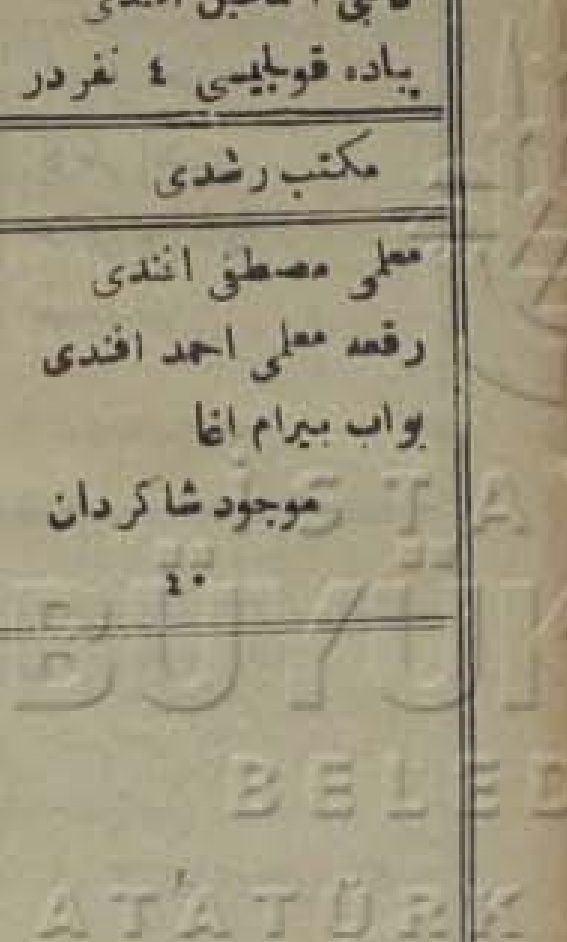 اسماعيل افندى
پياده قوليسى ٤ نفردر
مكتب رشدى
معلمى مصطفى افندى
رقعه معلمى احمد افندى
بواب بيرام اغا
موجود شاكردان
٤٠
ISTA
BÜYÜK
BELED
ATATÜRK